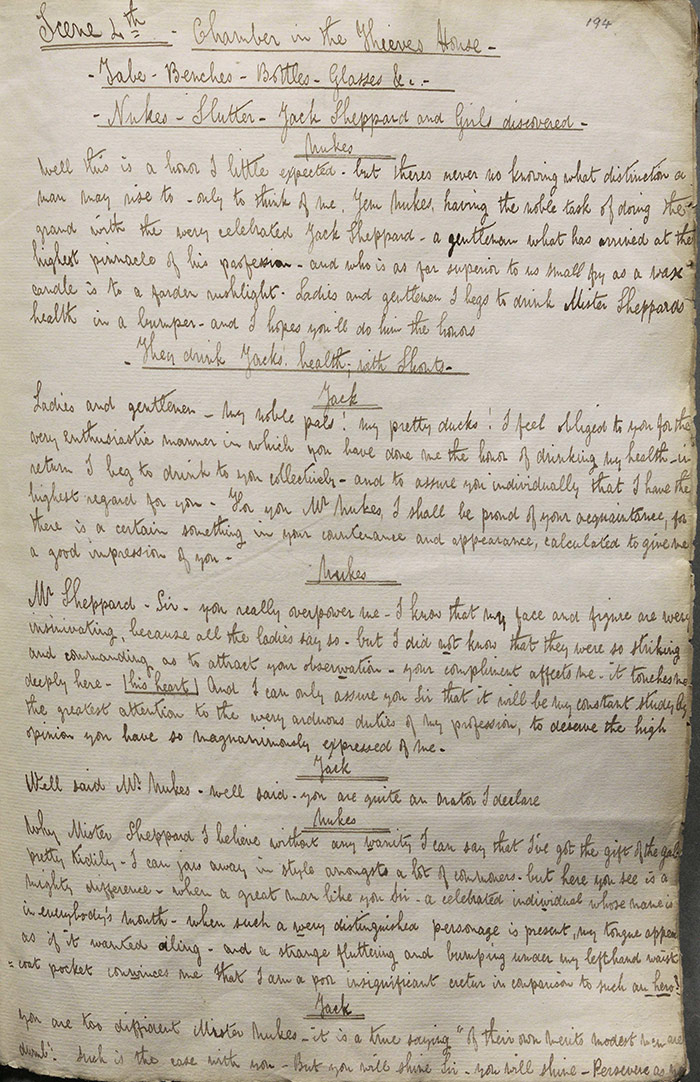 194
Scene 4th - Chamber in the Thieves House -
- Table - Benches - Bottles - Glasses &c. -
- Nukes - Slutter - Jack Sheppard and Girls discovered -
Nukes
Well this is a honor I little expected - but theres never no knowing what distinction a
man may rise to - only to think of me, Jem Nukes, having the noble task of doing the
grand with the wery celebrated Jack Sheppard - a gentleman what has arrived at the
highest pinnacle of his profession - and who is as far superior to us small fry as a wax
candle is to a farden rushlight - Ladies and gentlemen I begs to drink Mister Sheppards
health in a bumper - and I hopes you'll do him the honors
- They drink Jacks' health, with Shouts -
Jack
Ladies and gentlemen - my noble pals! my pretty ducks! I feel obliged to you for the
very enthusiastic manner in which you have done me the honor of drinking my health - in
return I beg to drink to you collectively - and to assure you individually that I have the
highest regard for you - For you Mr Nukes, I shall be proud of your acquaintance, for
there is a certain something in your countenance and appearance, calculated to give me
a good impression of you -
Nukes
Mr Sheppard - Sir - you really overpower me - I know that my face and figure are wery
insinivating, because all the ladies say so - but I did not know that they were so striking
and commanding as to attract your observation - your compliment affects me - it touches me
deeply here - [his heart] And I can only assure you Sir that it will be my constant study by
the greatest attention to the wery arduous duties of my profession, to deserve the high
opinion you have so magnanimously expressed of me -
Jack
Well said Mr Nukes - well said - you are quite an orator I declare
Nukes
Why Mister Sheppard I believe without any wanity I can say that I've got the gift of the gab
pretty Kidily - I can jaw away in style amongst a lot of commoners - but here you see is a
mighty difference - when a great man like you Sir - a celebrated individual whose name is
in everybody's mouth - when such a wery distinguished personage is present, my tongue appears
as if it wanted oiling - and a strange fluttering and bumping under my lefthand waist
= coat pocket convinces me that I am a poor insignificant cretur in comparison to such an hero!
Jack
You are too diffident Mister Nukes - it is a true saying "of their own merits modest men are
dumb". Such is the case with you - But you will shine Sir - you will shine - Persevere as